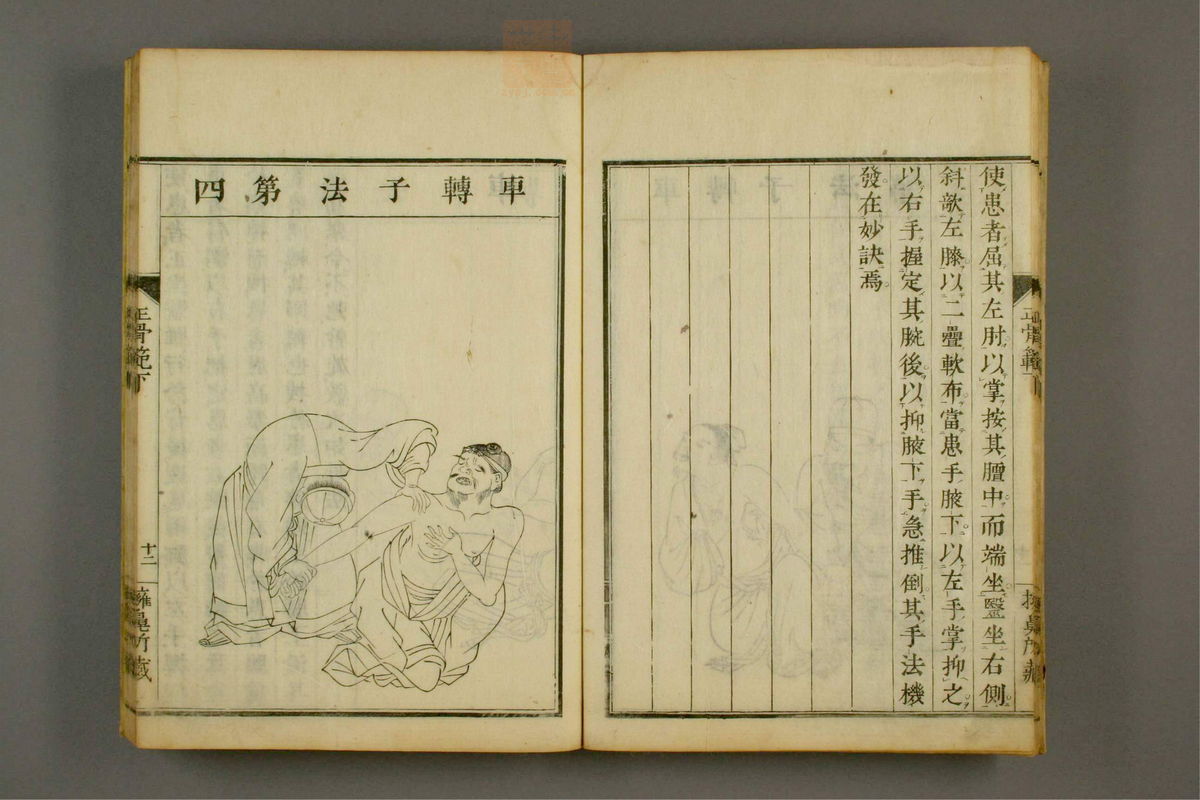 使患者屈其左肘以掌按其膻中而端坐醫坐右側
斜歆左膝以二疊軟布當患手腋下以左手掌抑之
以右手握定其腕後以抑腋下手急推倒其手法機
發在妙訣焉
車轉子法第四
正骨範下
十二